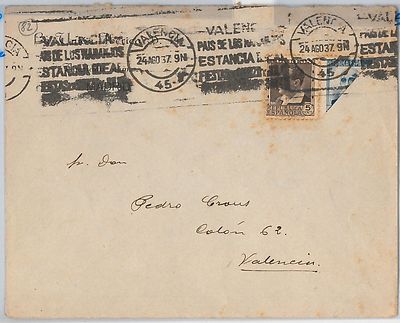 82
VALENCIA
PAIS DE LOS NARANJOS
ESTANCIA IDEAL
VALENCIA
24 AGO 37. 9N
45
VALENCIA
PAIS DE LOS
ESTANCIA
VALENCIA
24 AGO 37. 9N
45
ESTANCIA
5
ESPAÑOLA
Sr. Don
Pedro Crous
Colón 62.
Valencia.